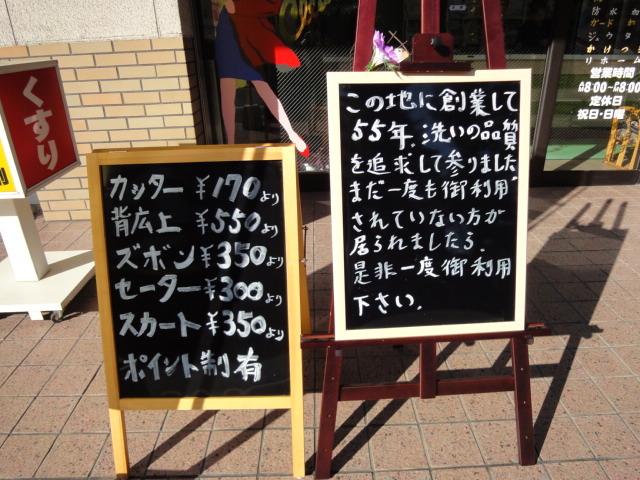 くすり
カッター ¥170より
背広上 ¥550より
ズボン ¥350より
セーター ¥300より
スカート ¥350より
ポイント制有
この地に創業して
55年、洗いの品質
を追求して参りました。
まだ一度も御利用
されていない方が
居られましたら、
是非一度御利用
下さい。
防水
ガード
かけつぎ
リホーム
営業時間
AM8:00~PM8:00
定休日
祝日・日曜